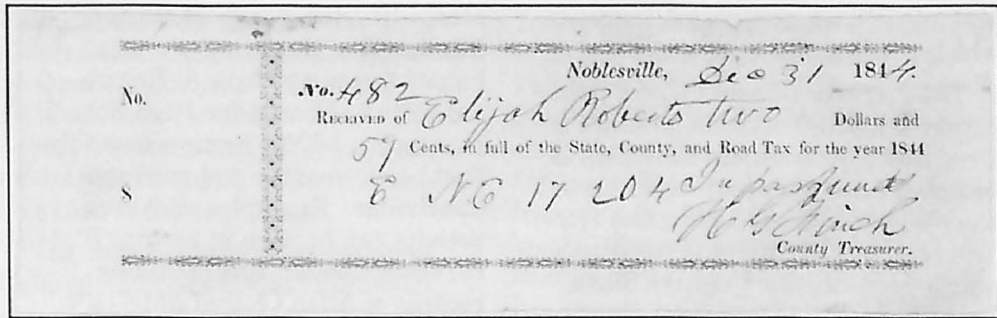 Noblesville, Dec 31 1844.
No. No. 482
Received of Elijah Roberts two Dollars and
57 Cents, in full of the State, County, and Road Tax for the year 1844
$ E NE 17 20 4
County Treasurer.